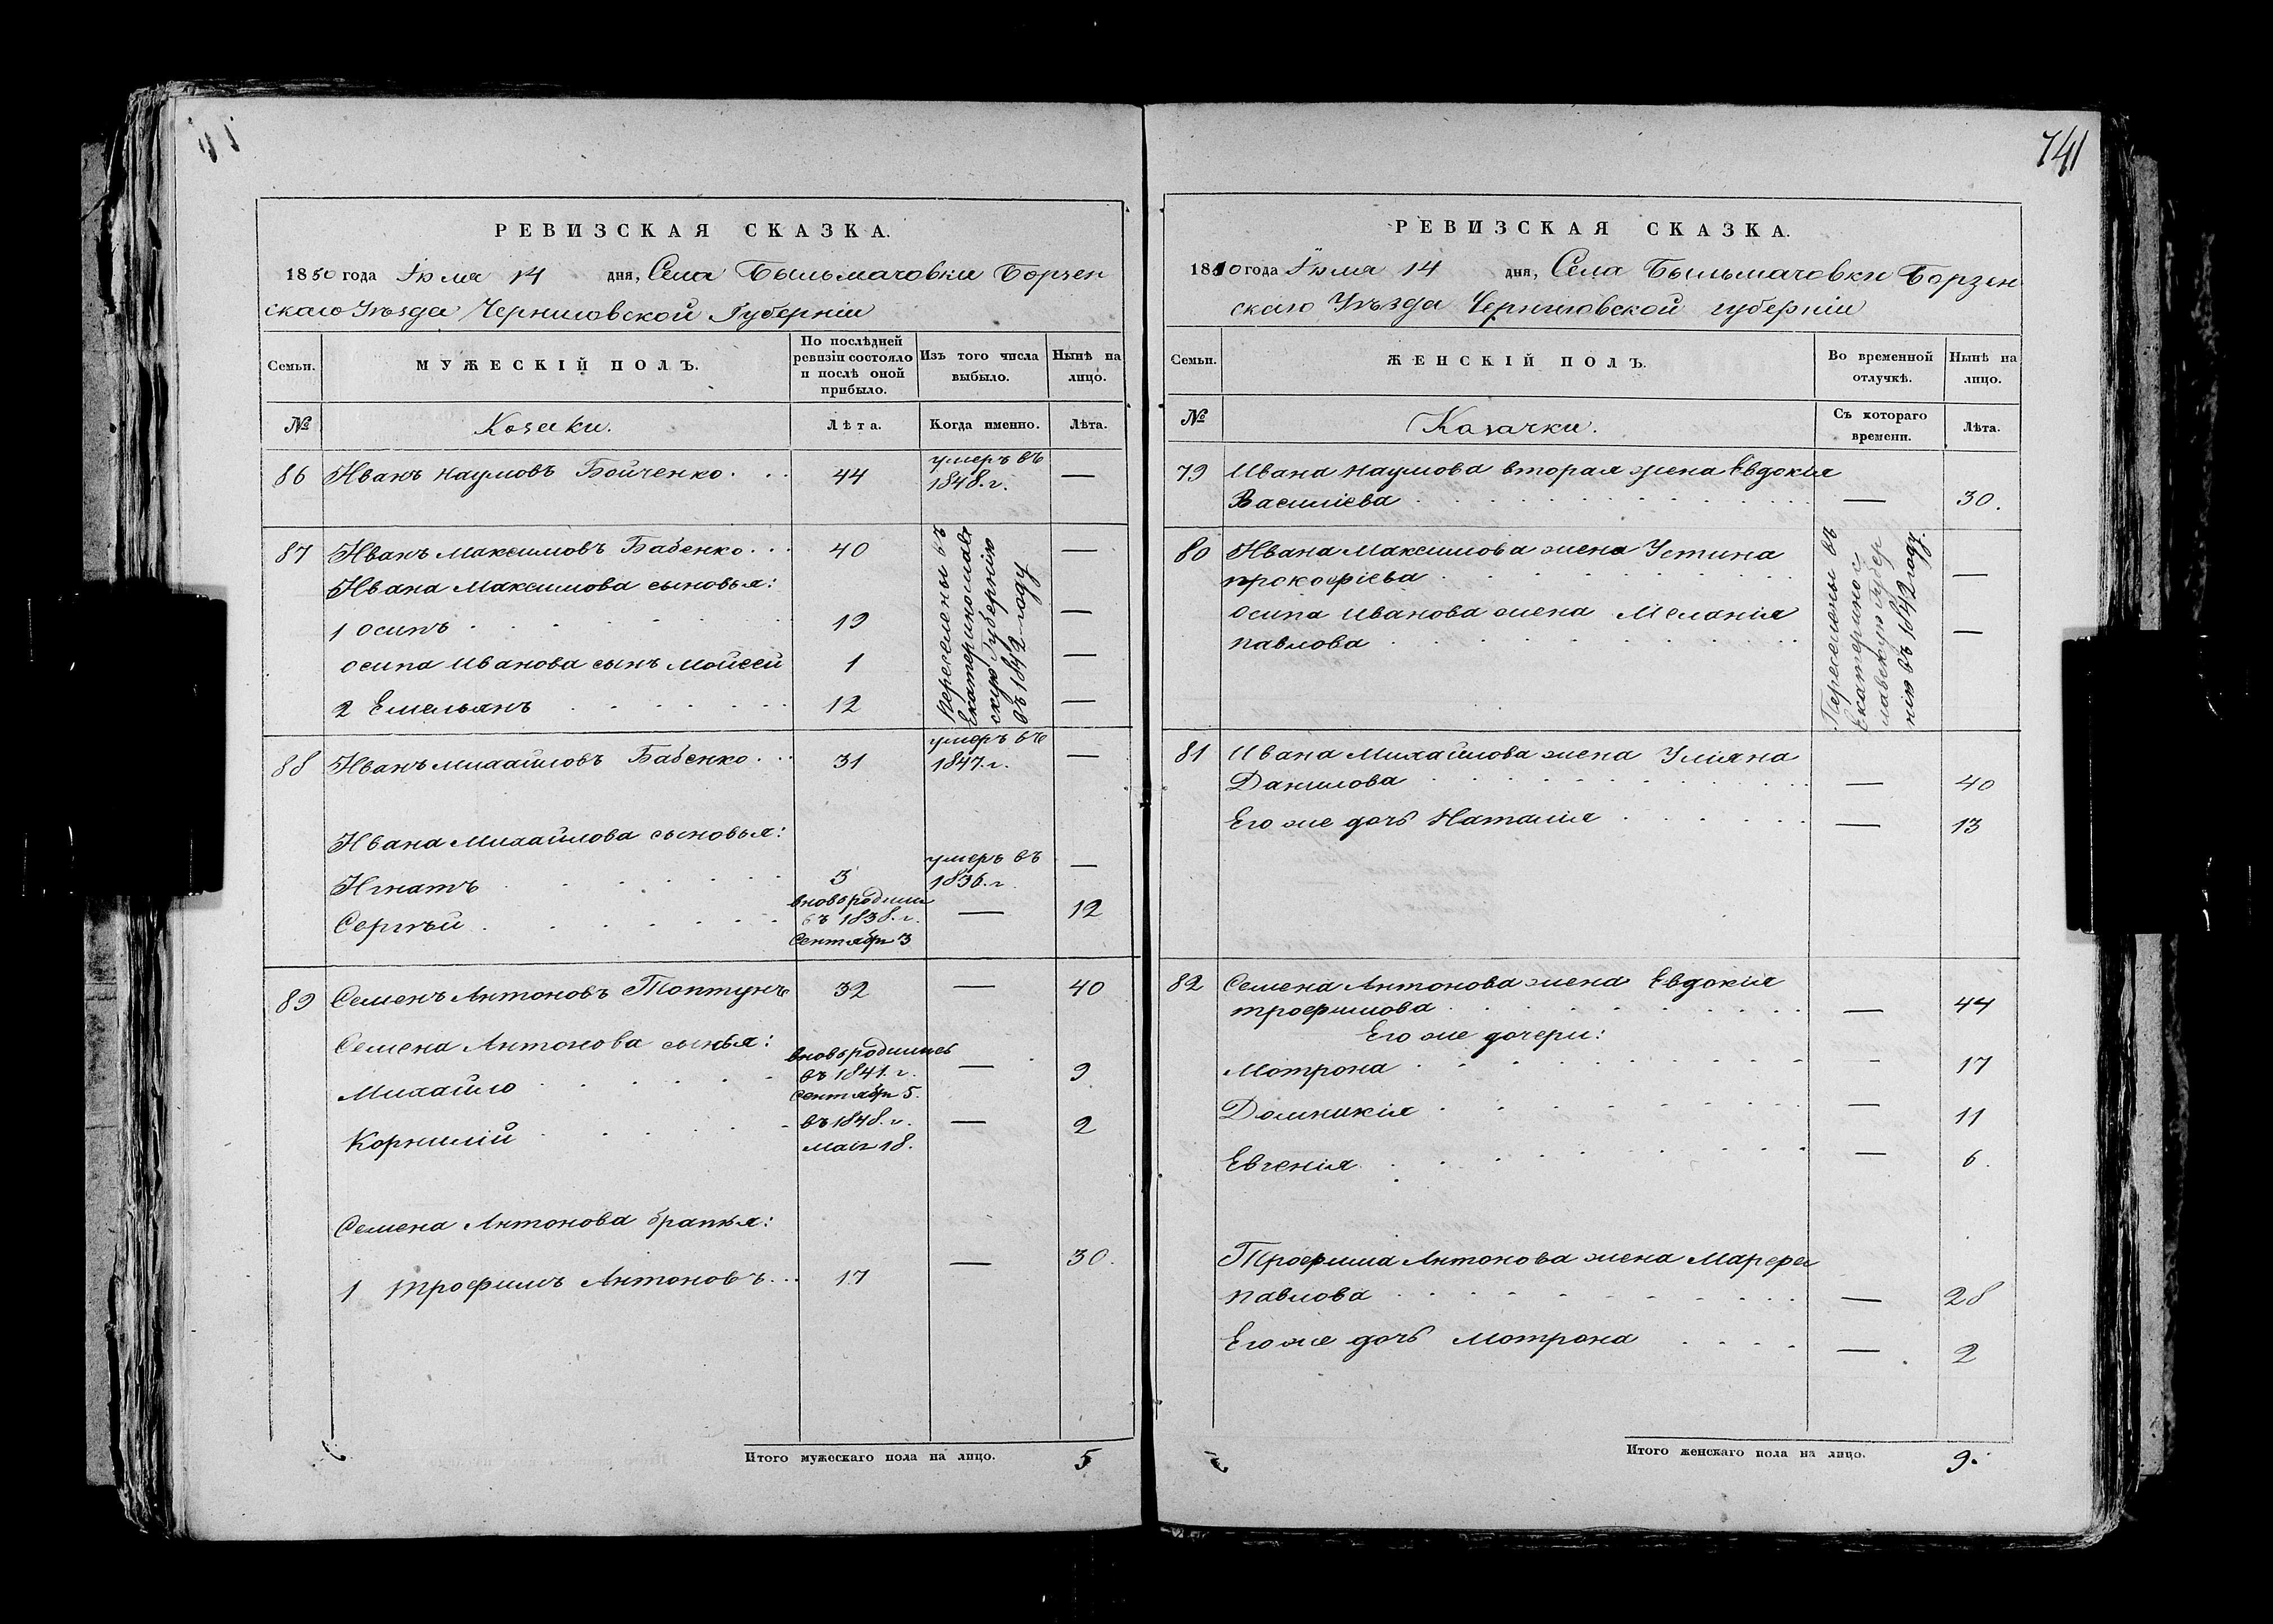 РЕВИЗСКАЯ СКАЗКА.
1850 года Іюля 14 дня, Села Бильмачовки Борзен
скаго Уѣзда Черниговской Губерніи
Семьи.
МУЖЕСКІЙ ПОЛЪ.
По послѣдней
ревизіи состояло
и послѣ оной
прибыло.
Изъ того числа
выбыло.
Нынѣ на
лицо.
№
Козаки.
Лѣта.
Когда именно.
Лѣта.
86 Иванъ Наумовъ Бойченко. . . 44 умеръ въ
1848. г. —
87 Иванъ Максимовъ Бабенко. . . 40 —
Ивана Максимова сыновья:
1 Осипъ . . . . . . . 19 —
Осипа Иванова сынъ Мойсей 1 —
2 Емельянъ . . . . . . 12 —
Переселены въ
Екатеринослав
скую Губернію
въ 1842 году
88 Иванъ Михайловъ Бабенко. . . 31 умеръ въ
1847. г. —
Ивана Михайлова сыновья:
Игнатъ . . . . . . 3 умеръ въ
1836. г. —
Сергѣй . . . . . . вновь родился
въ 1838. г.
Сентября 3 — 12
89 Семенъ Антоновъ Топтунъ 32 — 40
Семена Антонова сынья:
Михайло . . . . . . вновь родились
въ 1841. г.
Сентября 5. — 9
Корнилій . . . . . въ 1848. г.
Маія 18. — 2
Семена Антонова братья:
1 Трофимъ Антоновъ. . . 17 — 30.
Итого мужескаго пола на лицо. 5
741
РЕВИЗСКАЯ СКАЗКА.
1850 года Іюля 14 дня, Села Бильмачовки Борзен
скаго Уѣзда Черниговской губерніи
Семьи.
ЖЕНСКІЙ ПОЛЪ.
Во временной
отлучкѣ.
Нынѣ на
лицо.
№
Козачки.
Съ котораго
времени.
Лѣта.
79 Ивана Наумова вторая жена Евдокія
Василіева . . . . . . . . . — 30.
80 Ивана Максимова жена Устина
Прокофіева . . . . . . . . —
Осипа Иванова жена Меланія
Павлова . . . . . . . . —
Переселены въ
Екатеринос
лавскую Губер
нію въ 1842 году.
81 Ивана Михайлова жена Уліяна
Данилова . . . . . . . . . — 40
Его же дочь Наталія . . . . . . — 13
82 Семена Антонова жена Евдокія
Трофимова . . . . . . . . . — 44
Его же дочери:
Мотрона . . . . . . . . . - 17
Домникія . . . . . . . . — 11
Евгенія . . . . . . . . . — 6.
Трофима Антонова жена Марфа
Павлова . . . . . . . . . — 28
Его же дочь Мотрона . . . . — 2
Итого женскаго пола на лицо. 9.